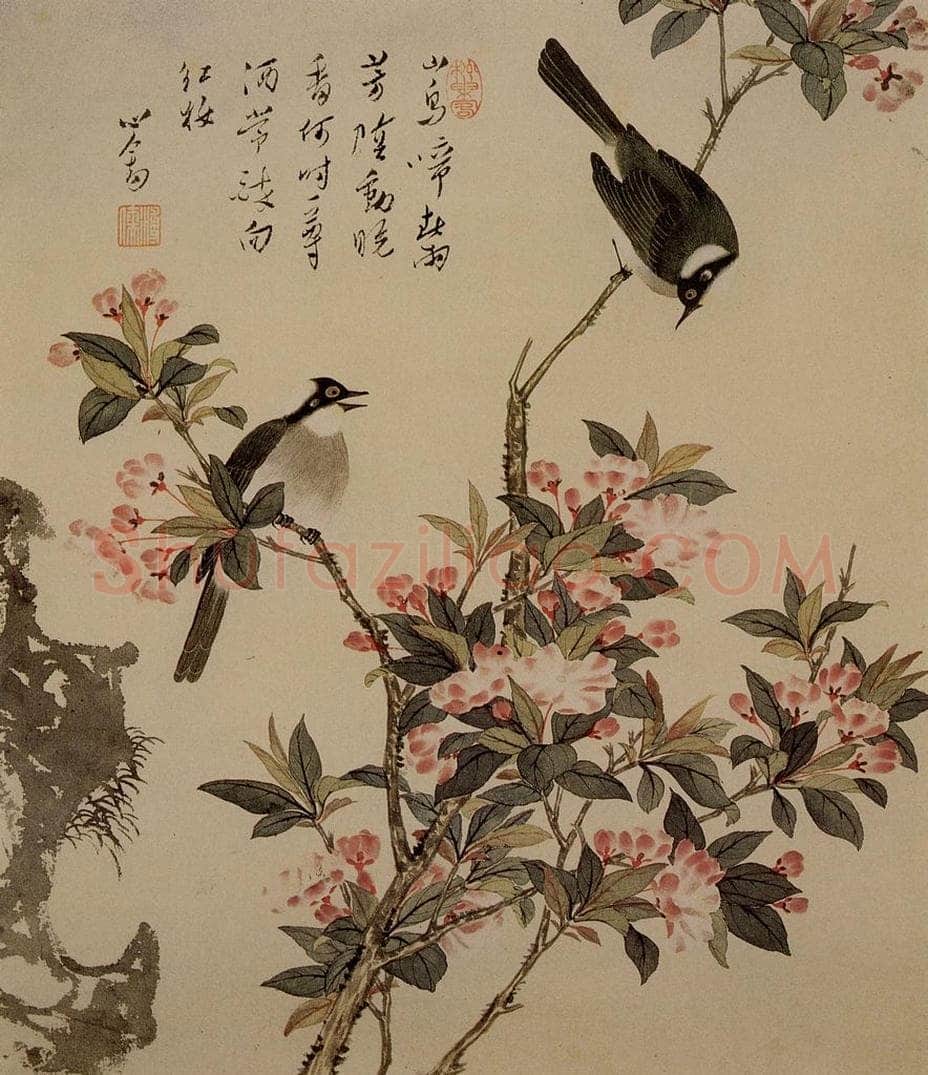 山鳥啼春雨
芳陰動晚
香何時一尊
酒帶醉向
紅妝
心畬
溥儒
Shufaziliao.COM